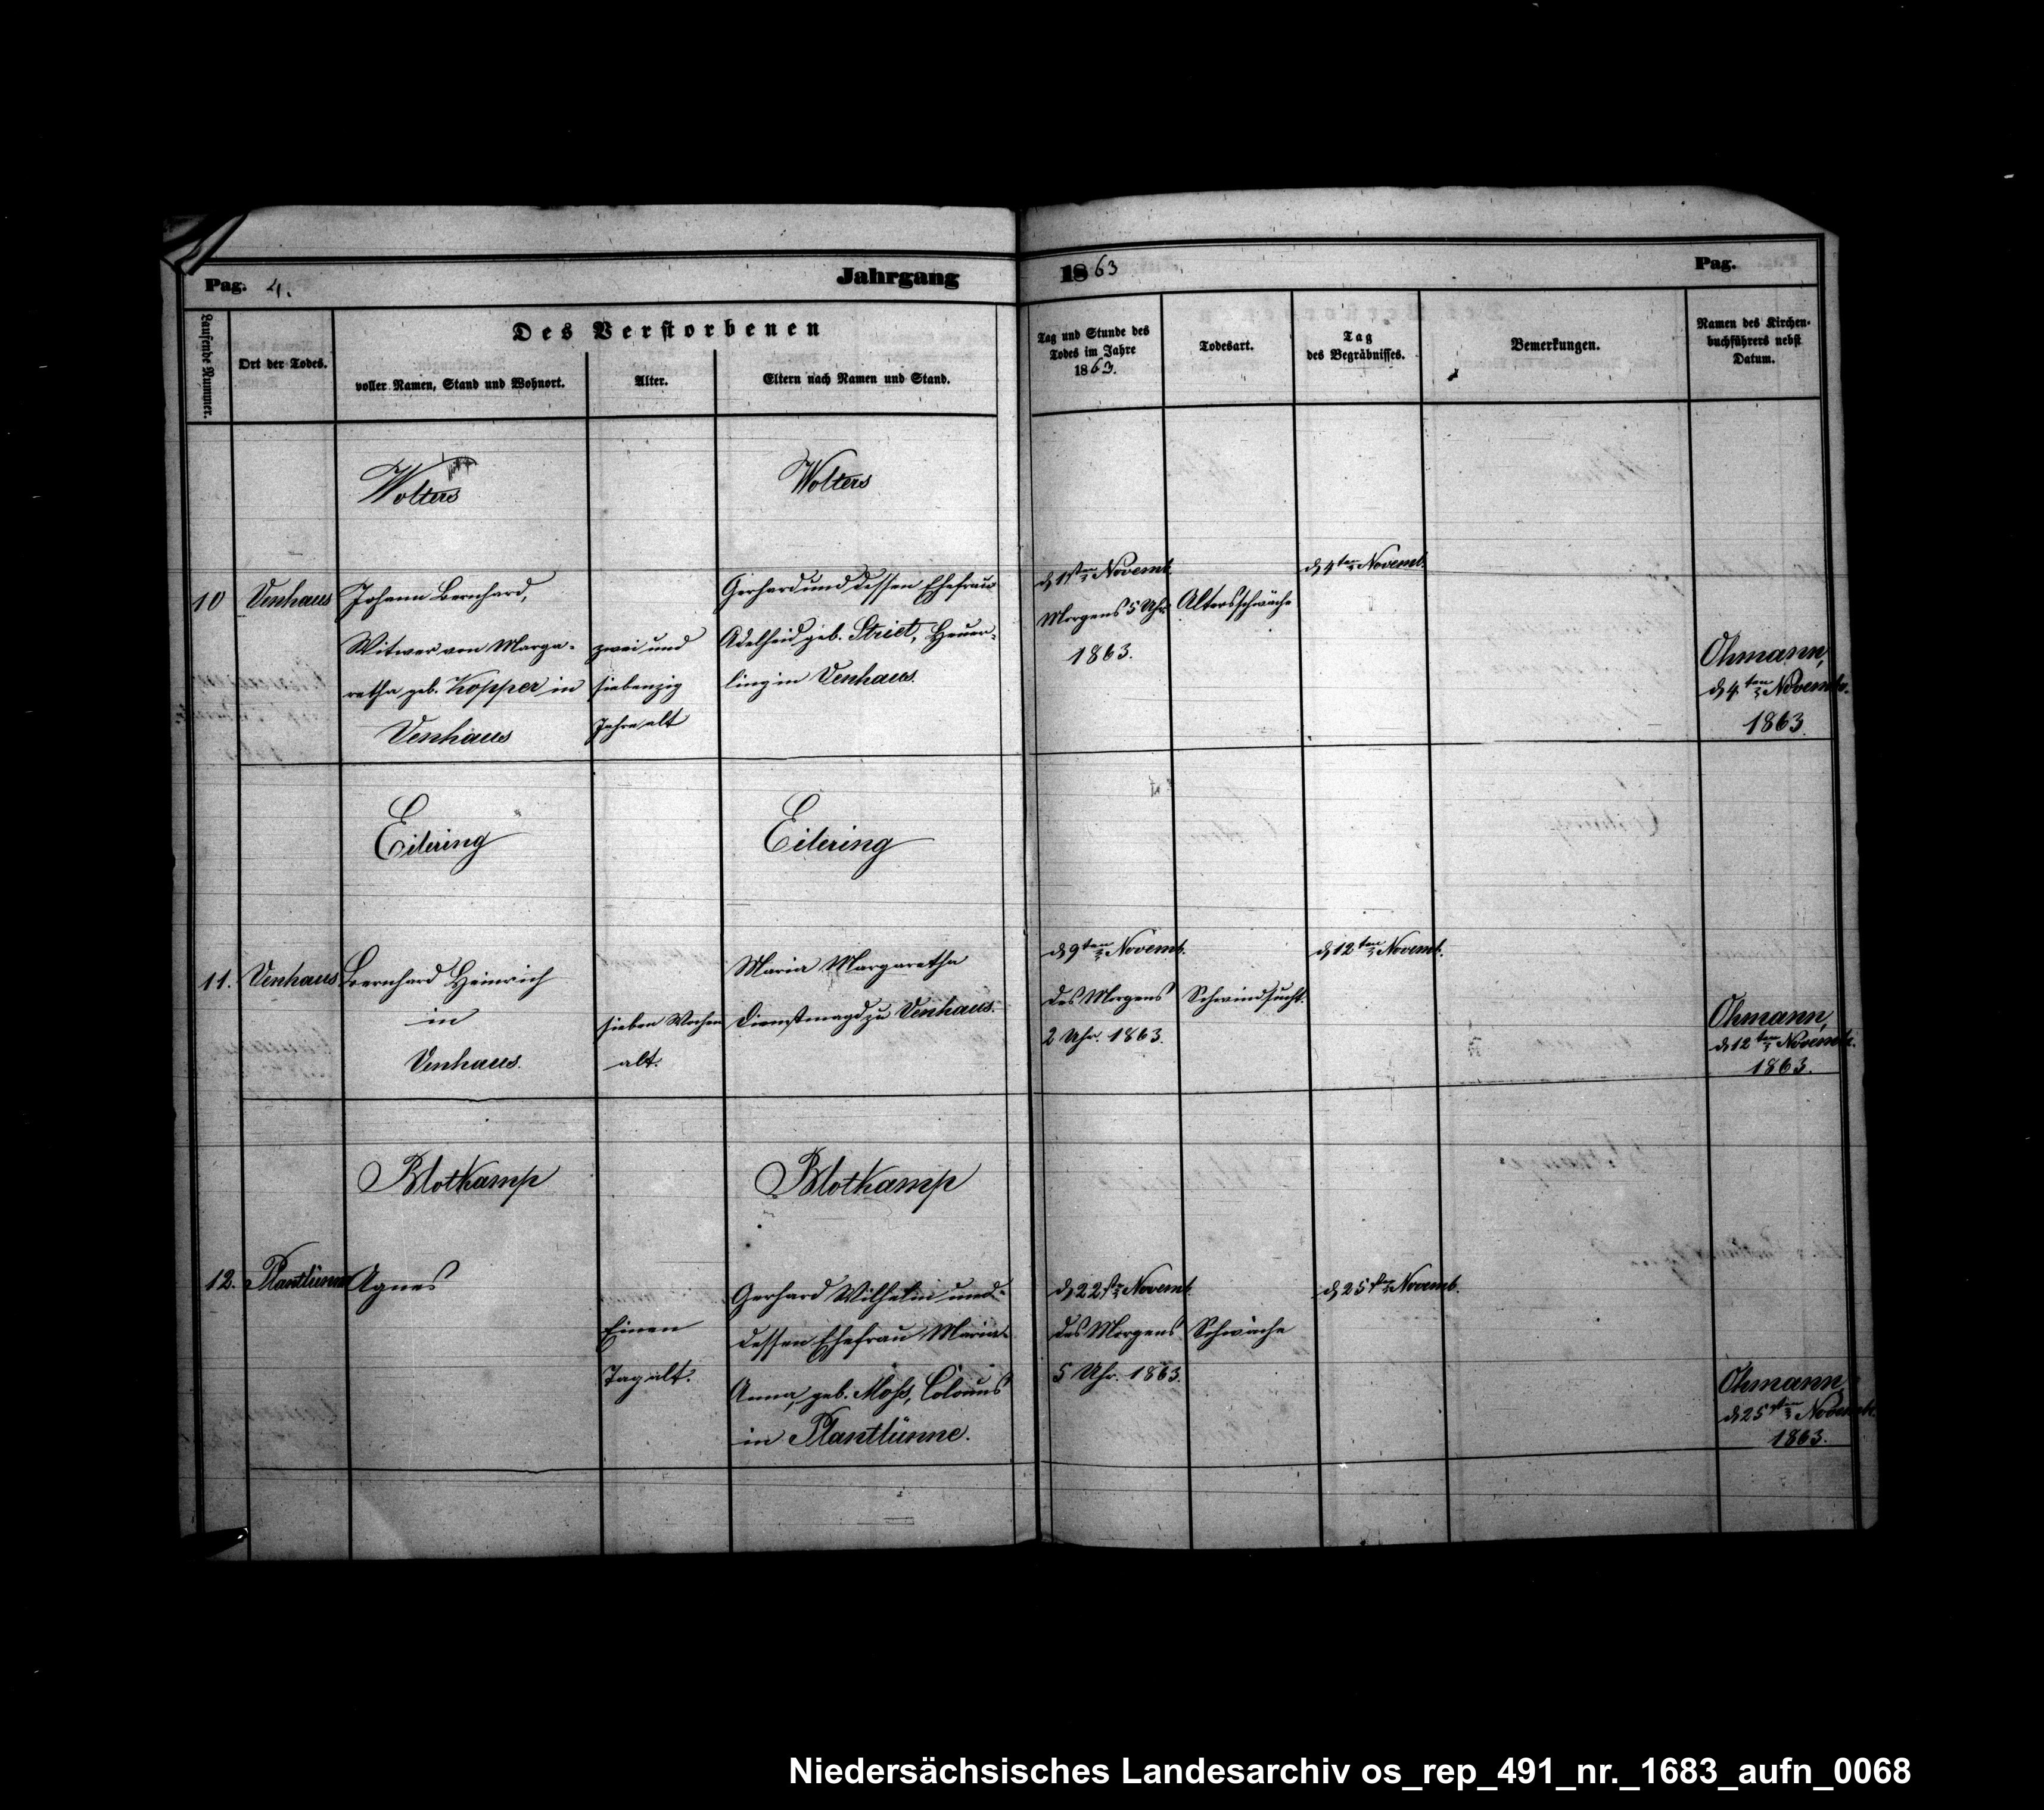 Pag. 4.
Jahrgang
1863
Pag.
Laufende Nummer.
Ort der Todes.
Des Verstorbenen
voller Namen, Stand und Wohnort.
Alter.
Eltern nach Namen und Stand.
Tag und Stunde des
Todes im Jahre
1863.
Todesart.
Tag
des Begräbnisses.
Bemerkungen.
Namen des Kirchen-
buchführers nebst
Datum.
Wolters
Wolters
10
Venhaus
Johann Bernhard,
Witwer von Marga-
retha geb. Kopper in
Venhaus
zwei und
siebenzig
Jahre alt
Gerhard und dessen Ehefrau
Adelheid geb. Striet, Heuer-
ling in Venhaus.
d 1sten Novemb.
Morgens 5 Uhr
1863.
Altersschwäche
d 4ten Novemb.
Ohmann,
d 4ten Novembr.
1863.
Eilering
Eilering
11.
Venhaus
Bernhard Heinrich
in
Venhaus.
sieben Wochen
alt.
Maria Margaretha
Dienstmagd zu Venhaus.
d 9ten Novemb.
des Morgens
2 Uhr. 1863.
Schwindsucht.
d 12ten Novemb.
Ohmann,
d 12ten Novemb.
1863.
Blotkamp
Blotkamp
12.
Plantlünne
Agnes
Einen
Tag alt.
Gerhard Wilhelm und
dessen Ehefrau Maria
Anna, geb. Möhs, Colonus
in Plantlünne.
d 22sten Novemb.
des Morgens
5 Uhr. 1863.
Schwäche
d 25sten Novemb.
Ohmann,
d 25sten Novemb.
1863.
Niedersächsisches Landesarchiv os_rep_491_nr._1683_aufn_0068